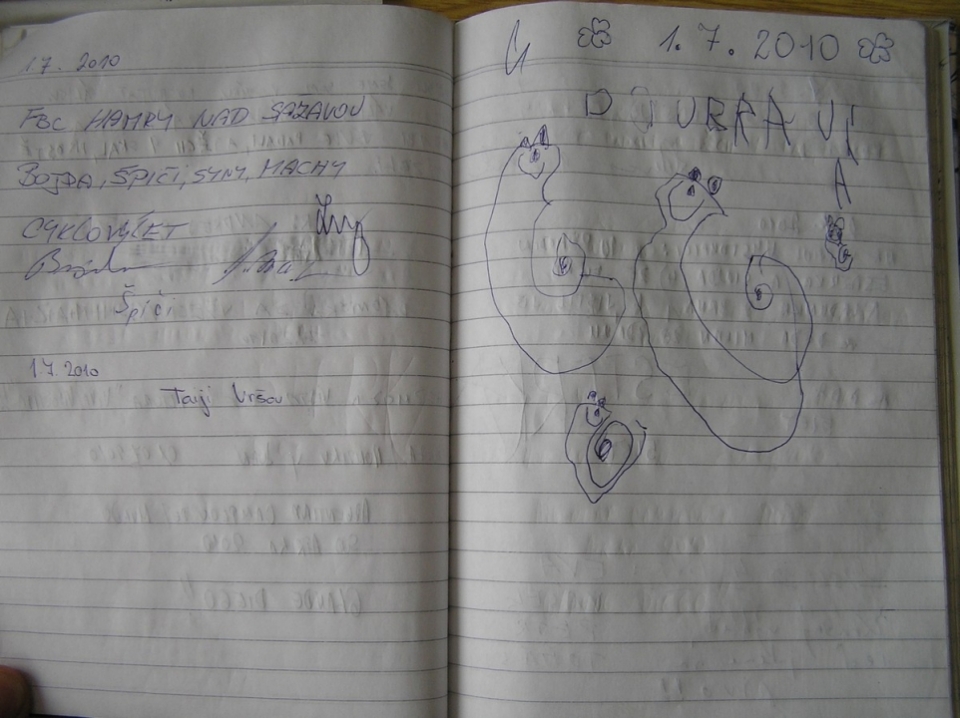 1.7. 2010
FBC HAMRY NAD SÁZAVOU
BOJDA, ŠPIČI, SYNY, MACHY
CYKLOVÝLET
Špiči
1.7.2010
Taiji Vršov
1.7.2010
DOUBRAVÍ
A